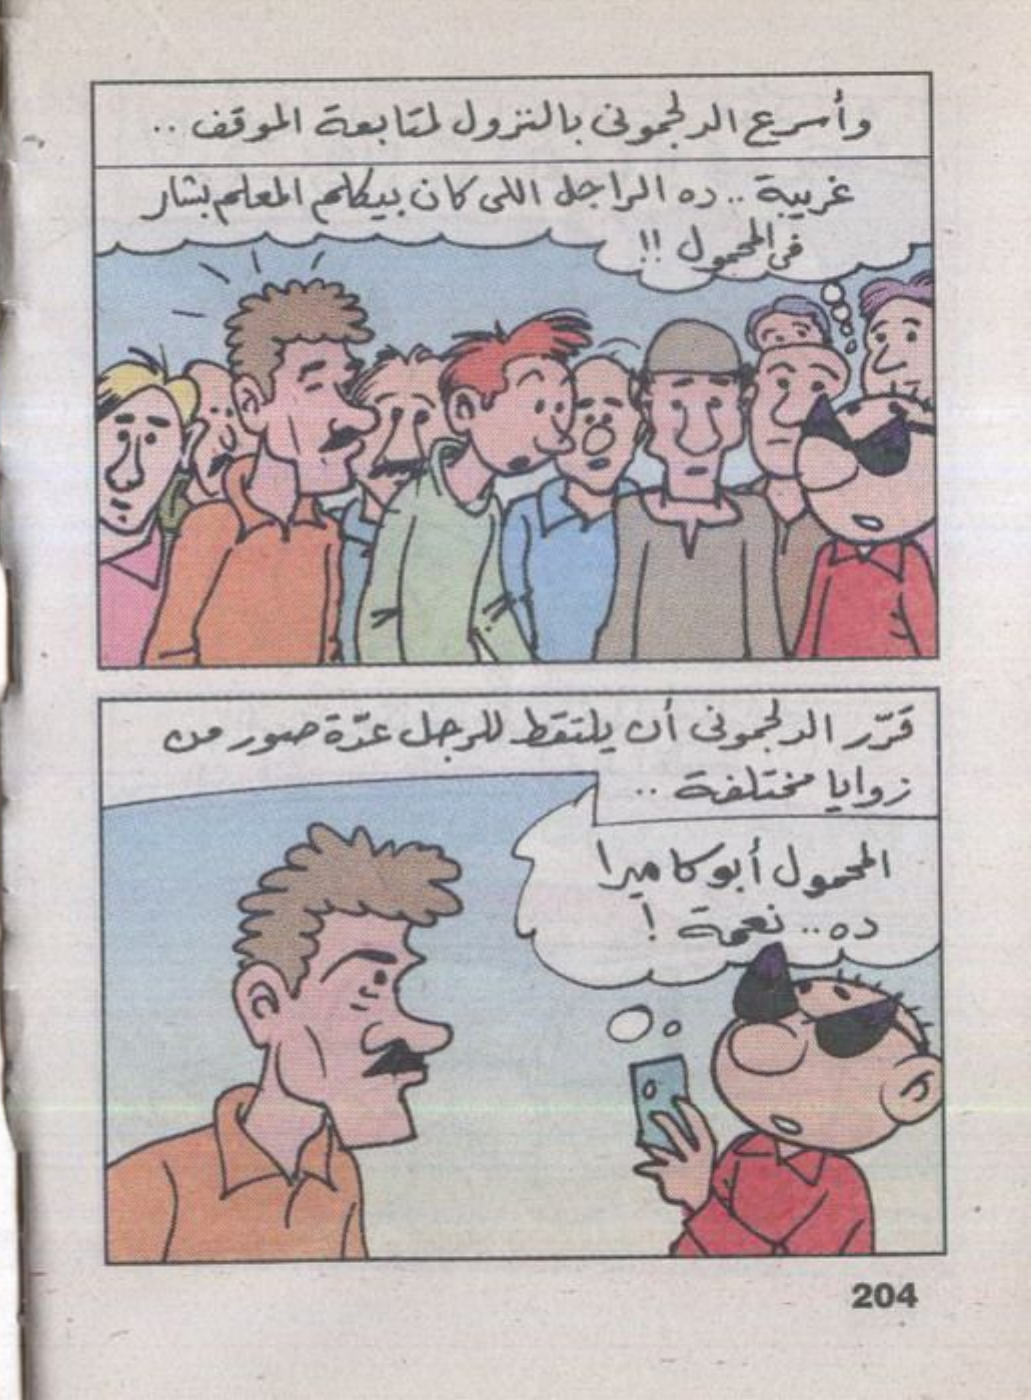 وأسرع الدلجمونى بالنزول لمتابعة الموقف ..
غريبة .. ده الراجل اللى كان بيكلم المعلم بشار
فى المحمول !!
قرّر الدلجمونى أن يلتقط للرجل عدّة صور من
زوايا مختلفة ..
المحمول أبو كاميرا
ده .. نعمة !
204